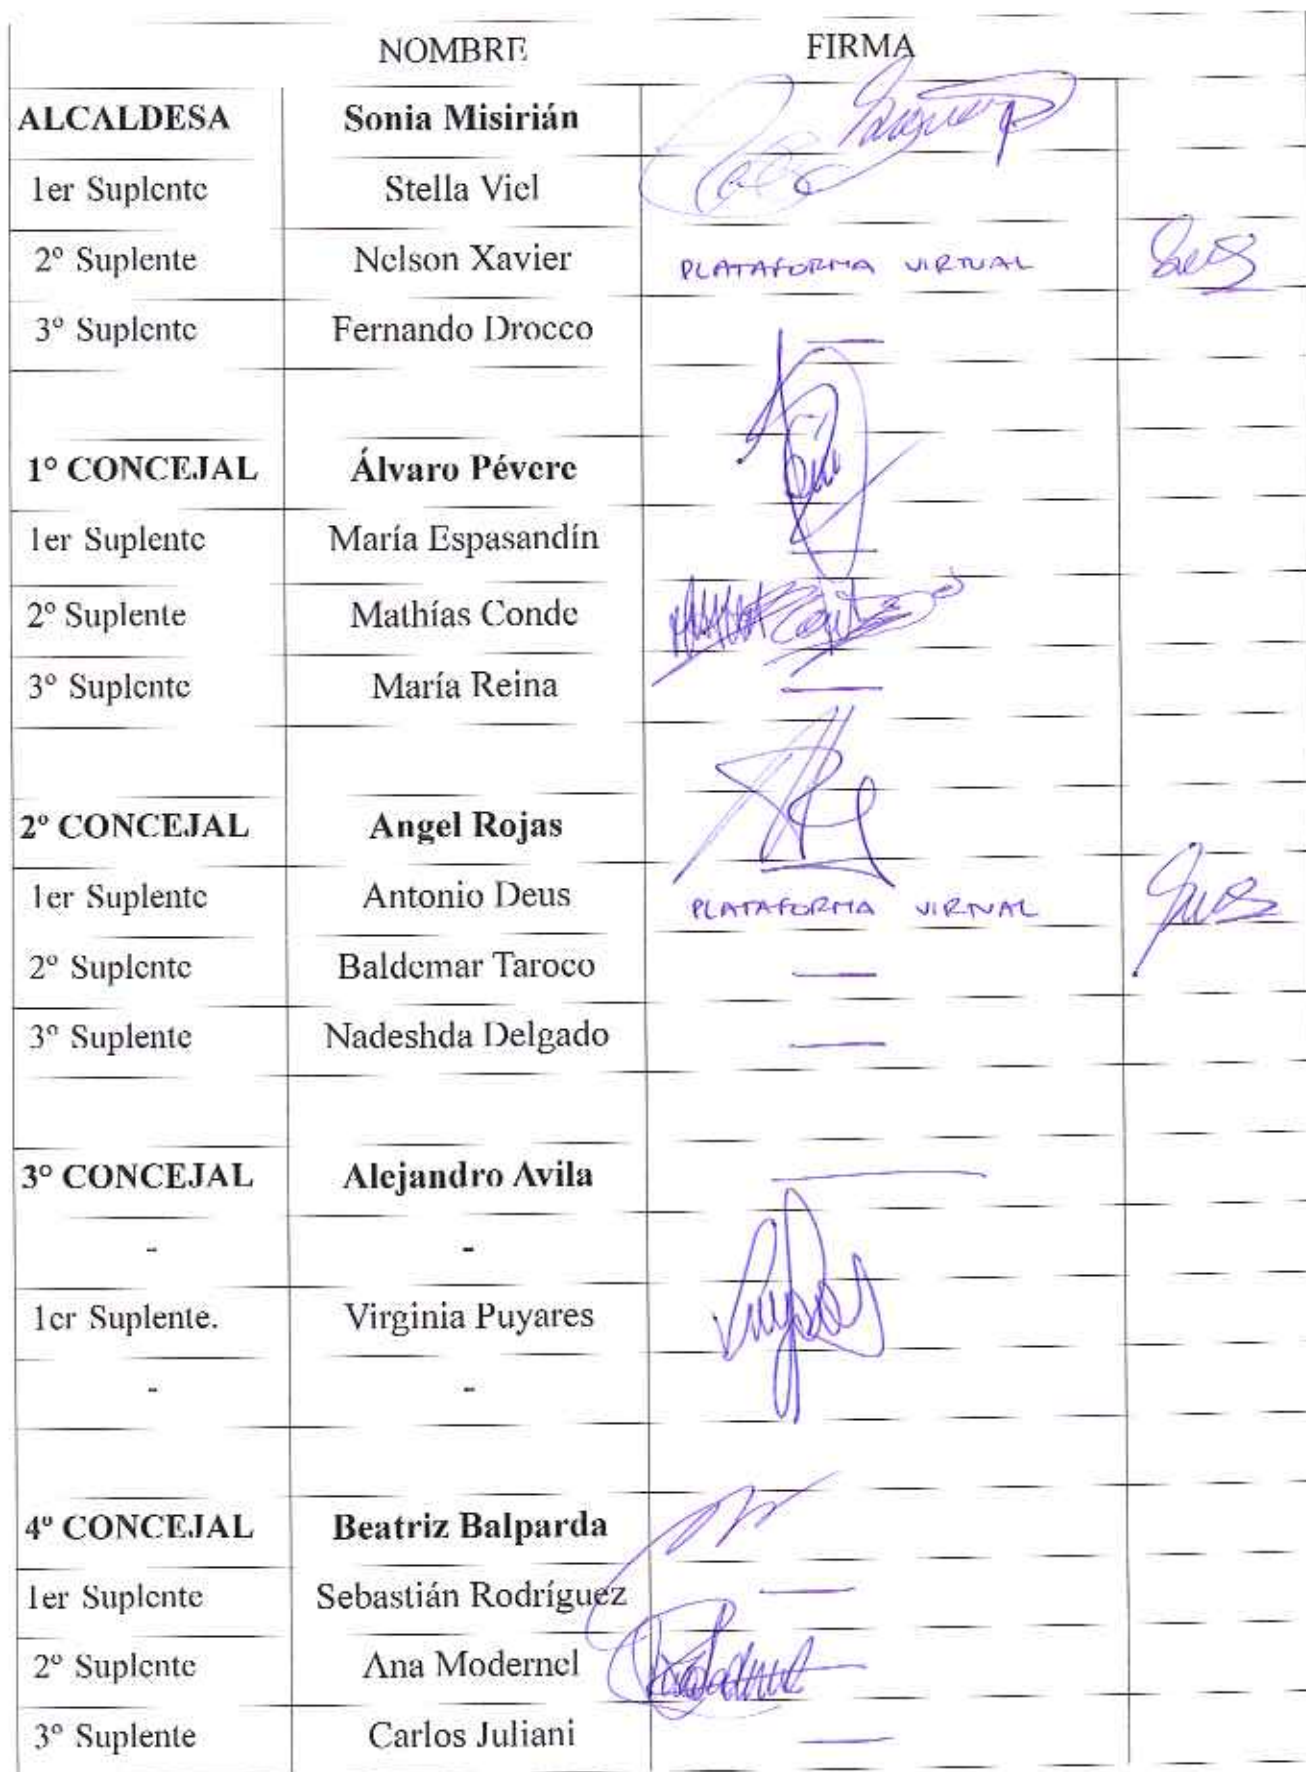 NOMBRE FIRMA
ALCALDESA Sonia Misirián
1er Suplente Stella Viel
2º Suplente Nelson Xavier PLATAFORMA VIRTUAL
3º Suplente Fernando Drocco
1º CONCEJAL Álvaro Pévere
1er Suplente María Espasandín
2º Suplente Mathías Conde
3º Suplente María Reina
2º CONCEJAL Angel Rojas
1er Suplente Antonio Deus PLATAFORMA VIRTUAL
2º Suplente Baldemar Taroco
3º Suplente Nadeshda Delgado
3º CONCEJAL Alejandro Avila
- -
1er Suplente. Virginia Puyares
- -
4º CONCEJAL Beatriz Balparda
1er Suplente Sebastián Rodríguez
2º Suplente Ana Modernel
3º Suplente Carlos Juliani